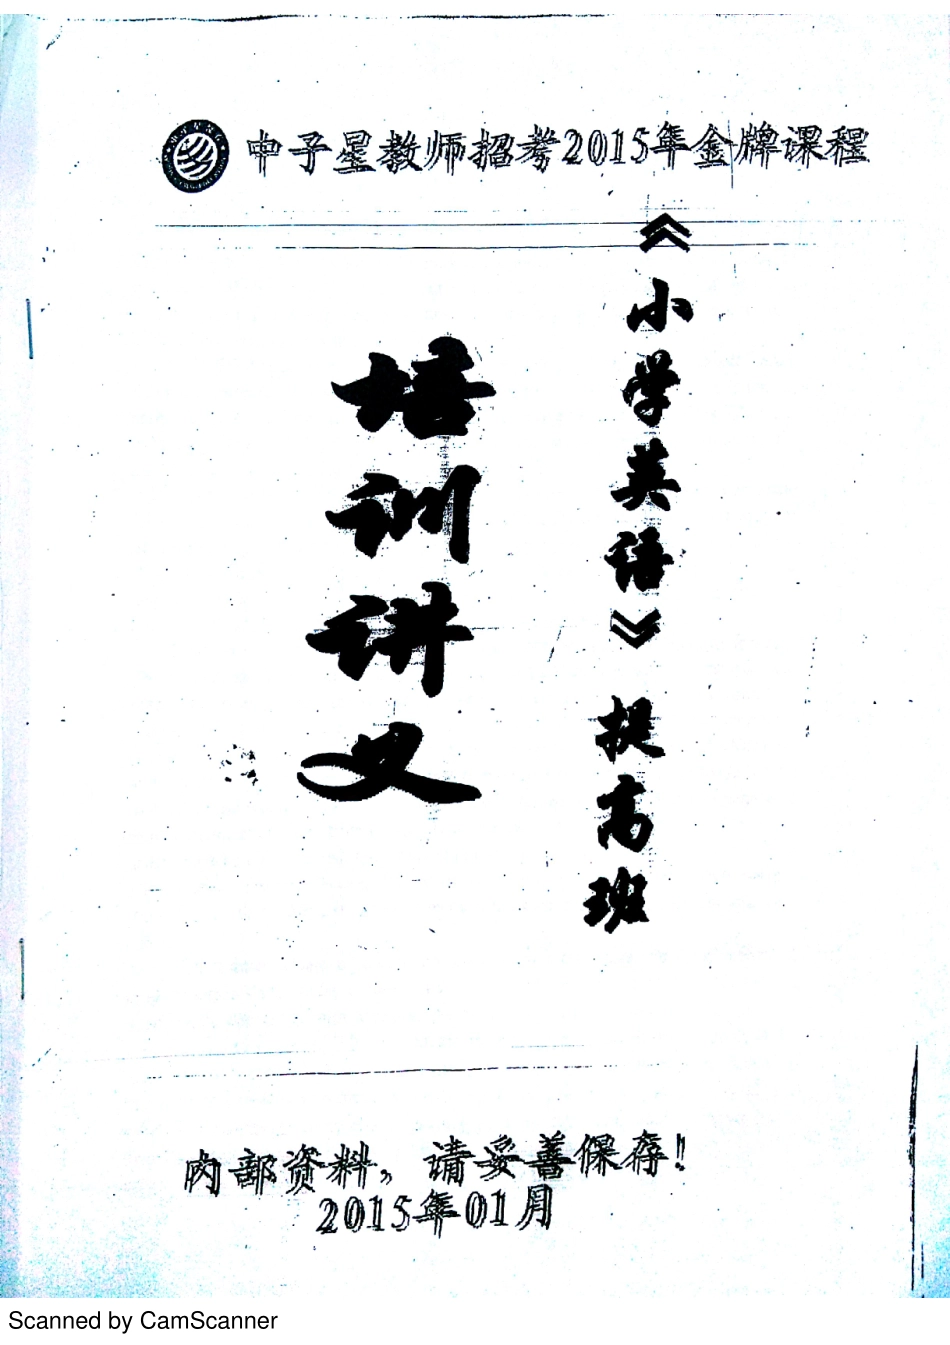 中子星教师招考2015年金牌课程
《小学英语》提高班
培训讲义
内部资料，请妥善保存！
2015年01月
Scanned by CamScanner